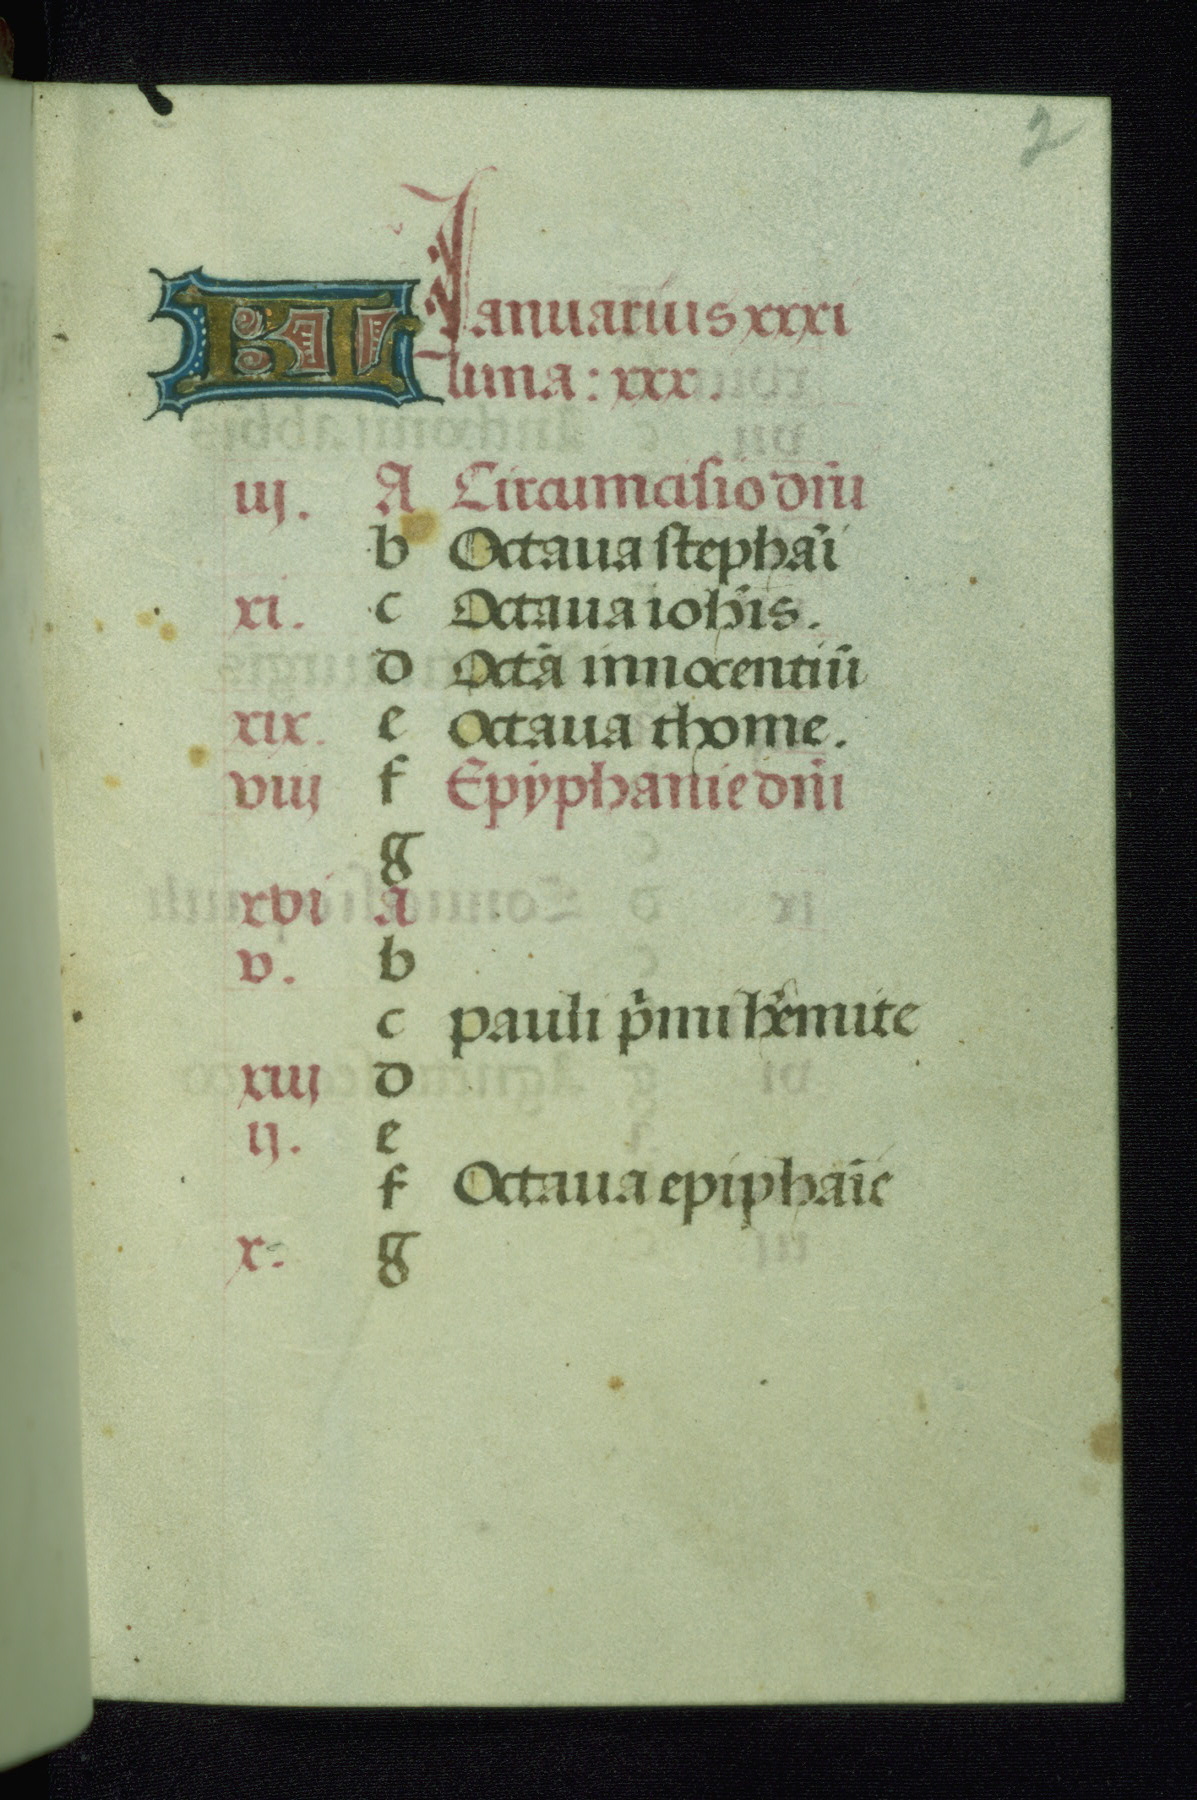 2
KL Ianuarius xxxi
luna: xxx.
iij. A Circumcisio dn̄i
b Octaua stephāi
xi. c Octaua ioh̄is.
d Octā innocentiū
xix. e Octaua thome.
viij f Epyphanie dn̄i
g
xvi A
v. b
c pauli p̄mi h̄emite
xiij d
ij. e
f Octaua epiphāie
x. g